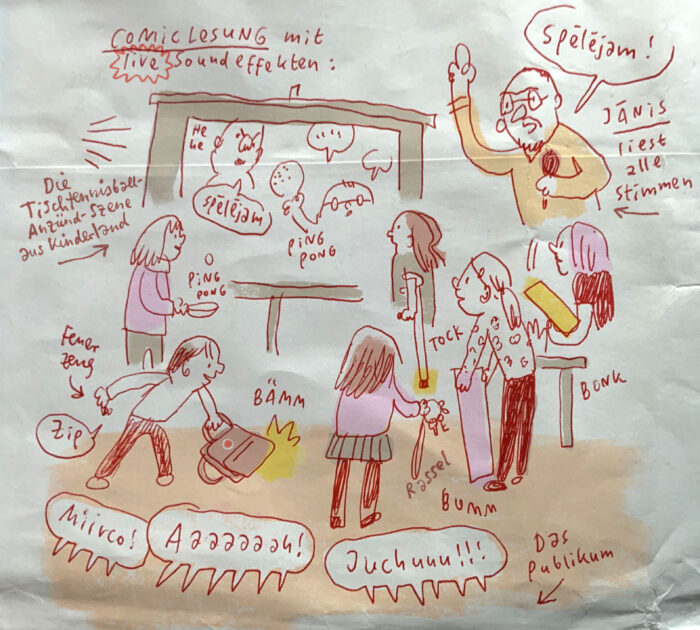 COMICLESUNG mit
live Soundeffekten:
Spēlējam!
JĀNIS
liest
alle
Stimmen
He
he
Spēlējam
PING
PONG
Die
Tischtennisball-
Anzünd-Szene
aus Kinderland
PING
PONG
TOCK
Feuer
zeug
Zip
BÄMM
BONK
Rassel
BUMM
Miirco!
Aaaaaaah!
Juchuuu!!!
Das
Publikum